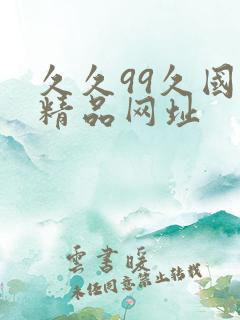 久久99久國
精品网址
雲書暖
未经同意禁止转载